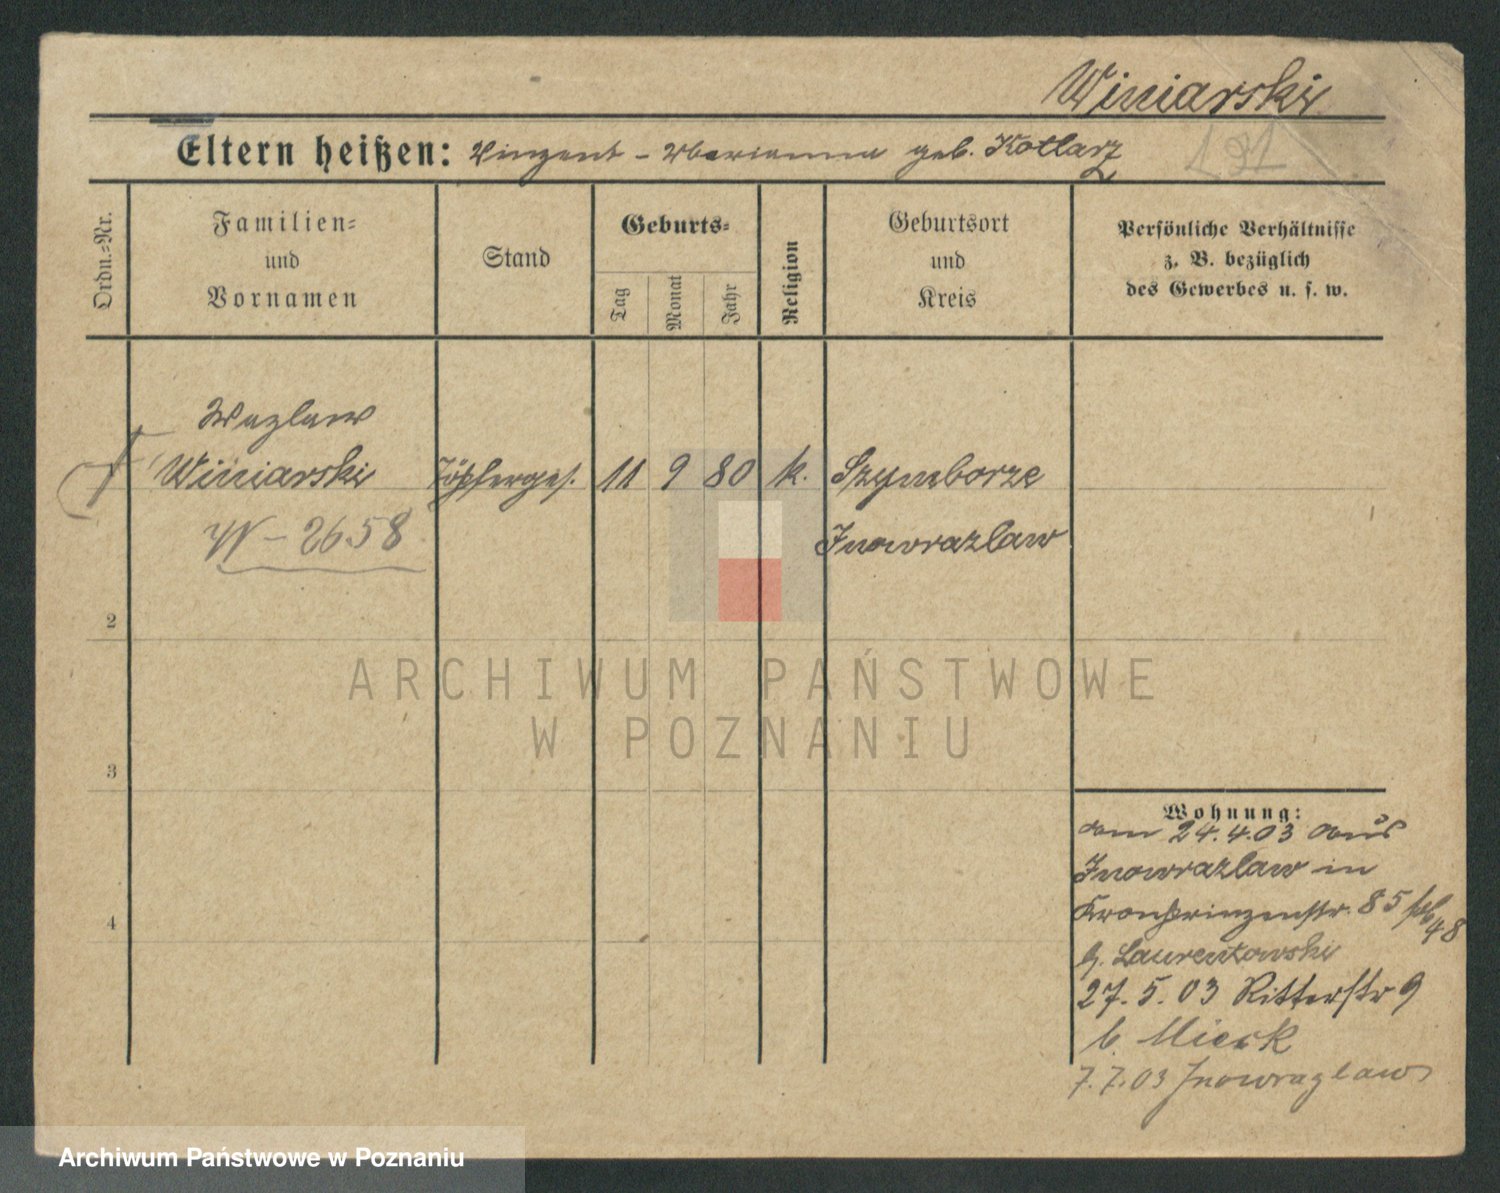 Winiarski
Eltern heißen: Vinzent - Marianna geb. Kotlarz
Ordn.-Nr.
Familien-
und
Vornamen
Stand
Geburts-
Tag
Monat
Jahr
Religion
Geburtsort
und
Kreis
Persönliche Verhältnisse
z. B. bezüglich
des Gewerbes u. s. w.
Wazlaw
Winiarski
Töpferges.
11
9
80
k.
Szymborze
W-2658
Inowrazlaw
2
3
4
Wohnung:
am 24.4.03 aus
Inowrazlaw in
Kronprinzenstr. 85
48
b. Laurentowski
27.5.03 Ritterstr 9
b. Mieck
7.7.03 Inowrazlaw
ARCHIWUM PAŃSTWOWE
W POZNANIU
Archiwum Państwowe w Poznaniu